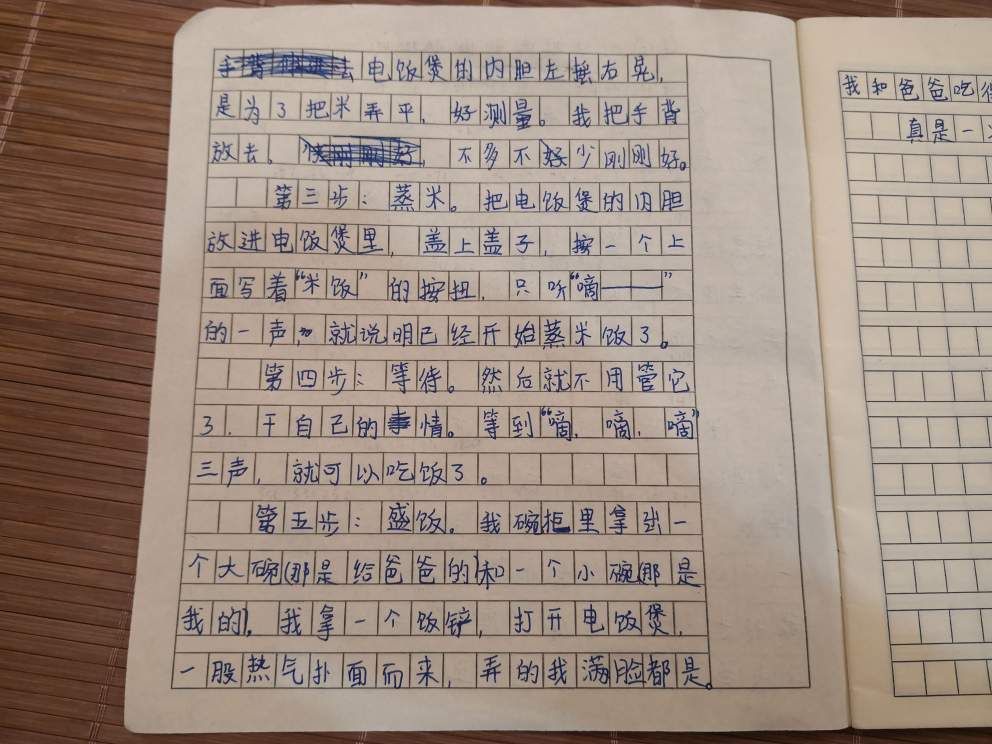 手去电饭煲的内胆左摇右晃，
是为了把米弄平，好测量。我把手背
放去。不多不少刚刚好。
第三步：蒸米。把电饭煲的内胆
放进电饭煲里，盖上盖子，按一个上
面写着“米饭”的按扭，只听“嘀——”
的一声，就说明已经开始蒸米饭了。
第四步：等待。然后就不用管它
了．干自己的事情。等到“嘀，嘀，嘀”
三声，就可以吃饭了。
第五步：盛饭。我碗柜里拿出一
个大碗(那是给爸爸的)和一个小碗(那是
我的)，我拿一个饭铲，打开电饭煲，
一股热气扑面而来，弄的我满脸都是。
我和爸爸吃得
真是一次